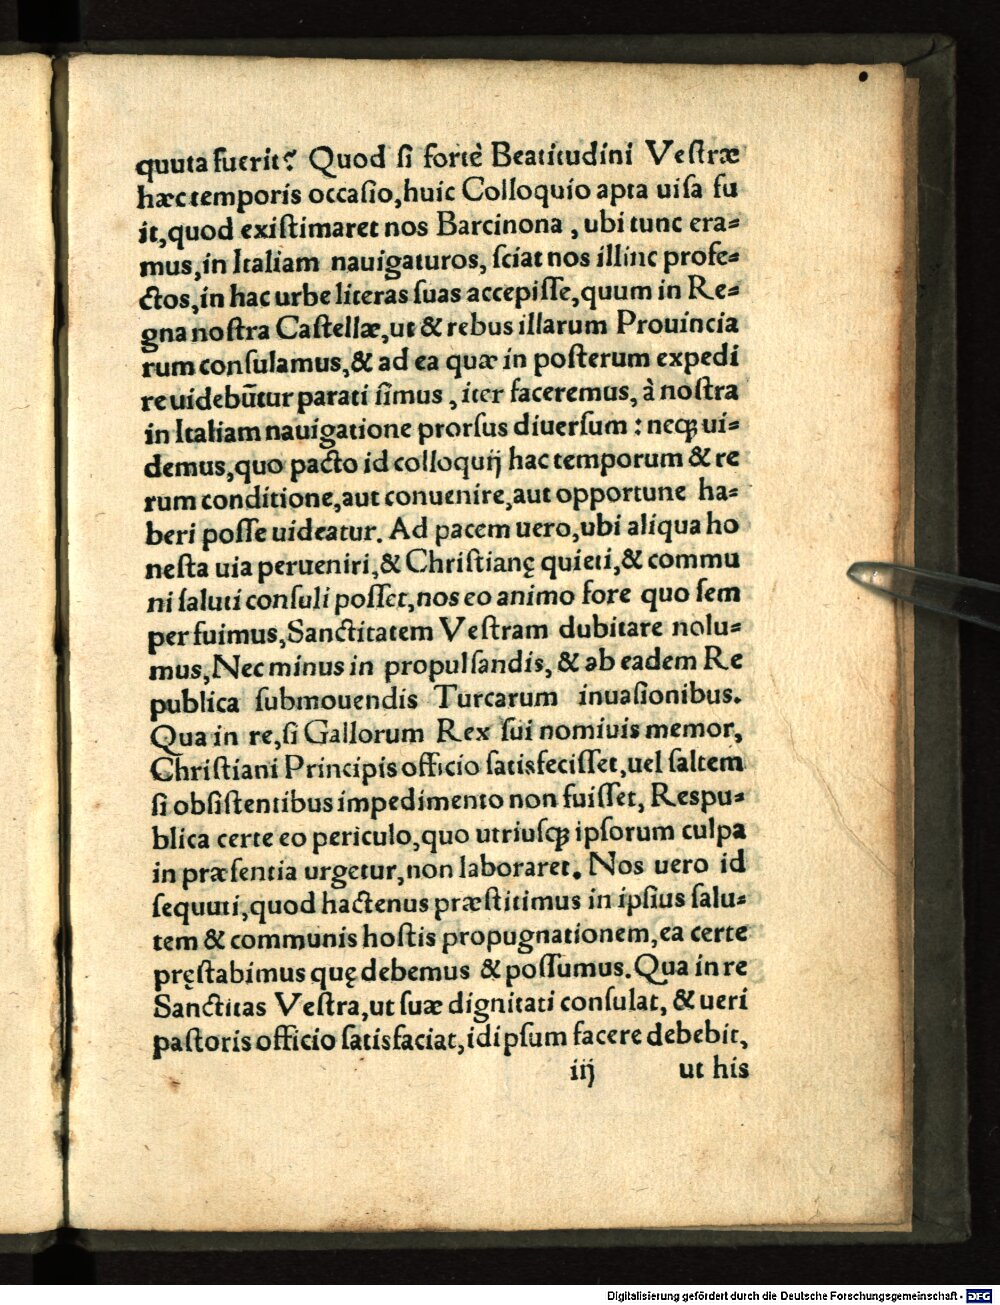 quuta fuerit? Quod ſi fortè Beatitudini Veſtræ
hæc temporis occaſio, huic Colloquio apta uiſa fu
it, quod exiſtimaret nos Barcinona, ubi tunc era=
mus, in Italiam nauigaturos, ſciat nos illinc profe=
ctos, in hac urbe literas ſuas accepiſſe, quum in Re=
gna noſtra Caſtellæ, ut & rebus illarum Prouincia
rum conſulamus, & ad ea quæ in poſterum expedi
re uidebūtur parati ſimus, iter faceremus, à noſtra
in Italiam nauigatione prorſus diuerſum: neqꝫ ui=
demus, quo pacto id colloquij hac temporum & re
rum conditione, aut conuenire, aut opportune ha=
beri poſſe uideatur. Ad pacem uero, ubi aliqua ho
neſta uia perueniri, & Chriſtianę quieti, & commu
ni ſaluti conſuli poſſet, nos eo animo fore quo ſem
per fuimus, Sanctitatem Veſtram dubitare nolu=
mus, Nec minus in propulſandis, & ab eadem Re
publica ſubmouendis Turcarum inuaſionibus.
Qua in re, ſi Gallorum Rex ſui nomiuis memor,
Chriſtiani Principis officio ſatisfeciſſet, uel ſaltem
ſi obſiſtentibus impedimento non fuiſſet, Reſpu=
blica certe eo periculo, quo utriuſqꝫ ipſorum culpa
in præſentia urgetur, non laboraret. Nos uero id
ſequuti, quod hactenus præſtitimus in ipſius ſalu=
tem & communis hoſtis propugnationem, ea certe
pręſtabimus quę debemus & poſſumus. Qua in re
Sanctitas Veſtra, ut ſuæ dignitati conſulat, & ueri
paſtoris officio ſatisfaciat, id ipſum facere debebit,
iij ut his
Digitalisierung gefördert durch die Deutsche Forschungsgemeinschaft - DFG